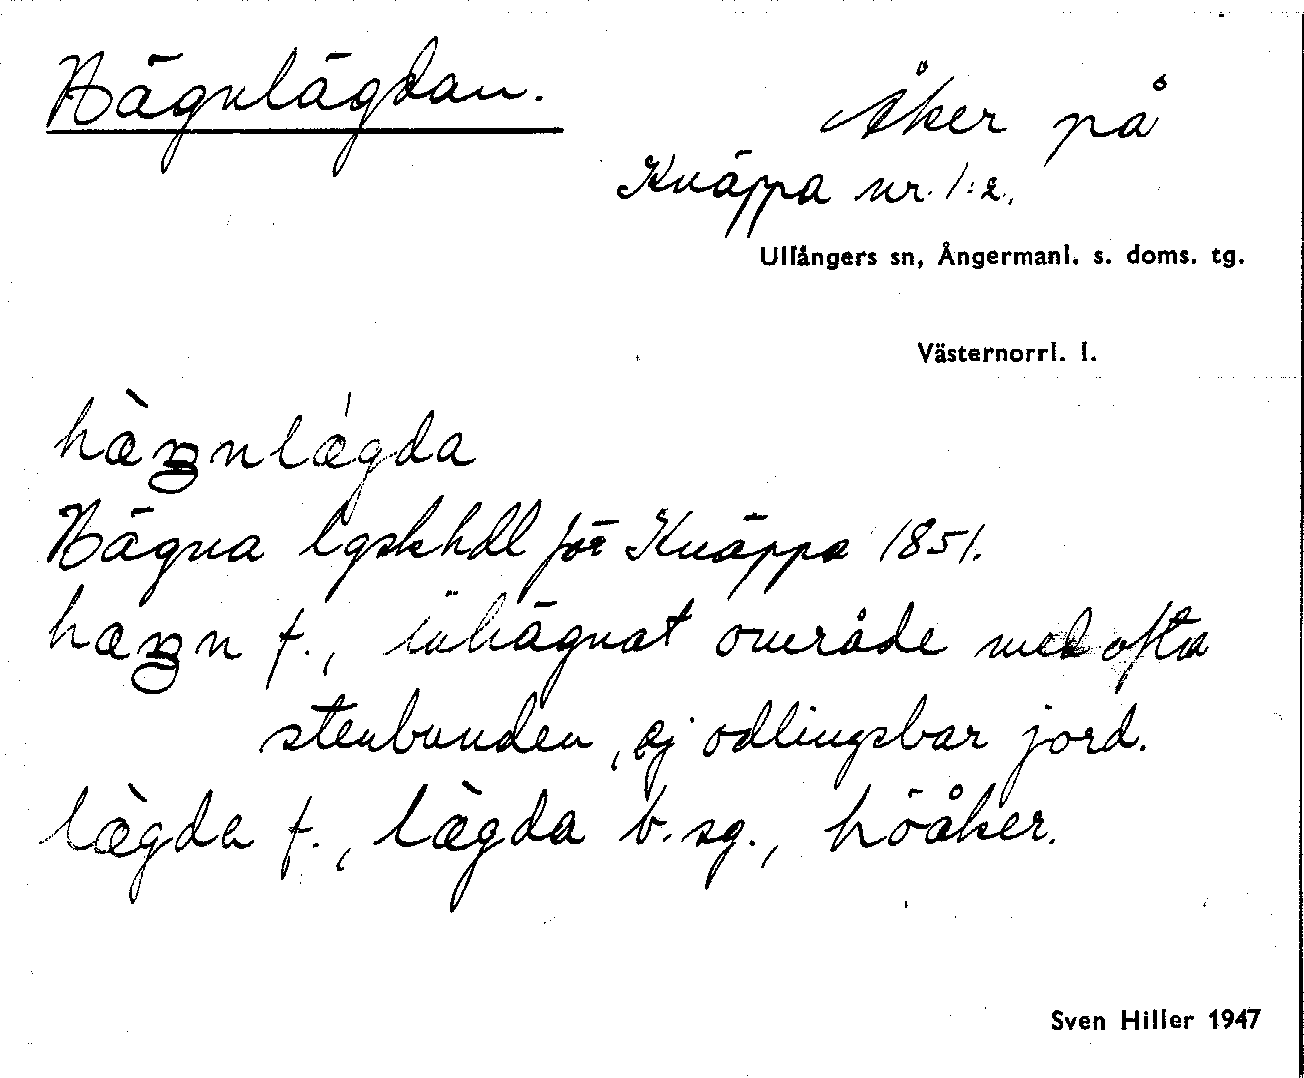 Hägnlägdan.
Åker på
Knäppa nr. 1:2.
Ullångers sn, Ångermanl. s. doms. tg.
Västernorrl. l.
hæ̀ŋnlǽgda
Hägna lgskhdl för Knäppa 1851.
hæŋn f., inhägnat område med ofta
stenbunden, ej odlingsbar jord.
læ̀gda f., læ̀gda b. sg., höåker.
Sven Hiller 1947